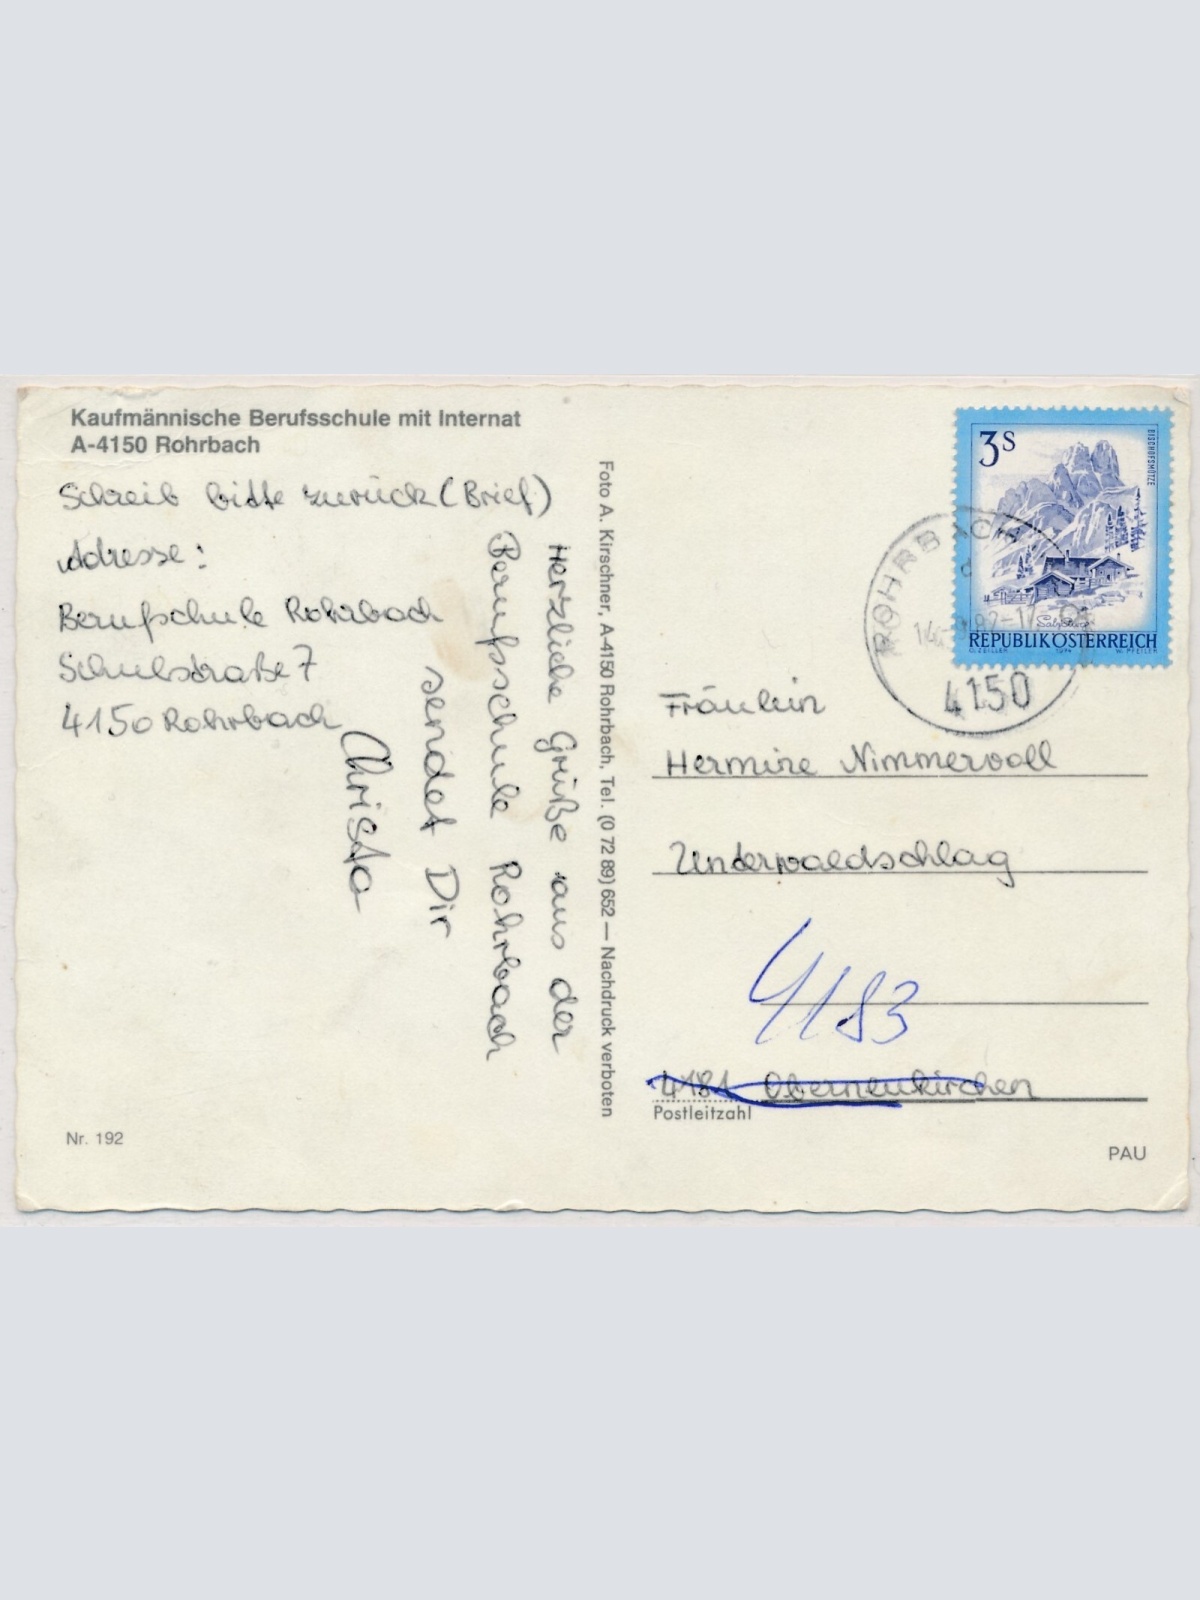 Kaufmännische Berufsschule mit Internat
A-4150 Rohrbach
Schreib bitte zurück (Brief)
Adresse:
Berufschule Rohrbach
Schulstraße 7
4150 Rohrbach
Herzliche Grüße aus der
Berufsschule Rohrbach
sendet Dir
Christa
Nr. 192
Foto A. Kirschner, A-4150 Rohrbach, Tel. (0 72 89) 652 — Nachdruck verboten
3S
BISCHOFSMÜTZE
Salzburg
REPUBLIK ÖSTERREICH
O. ZEILLER 1974 W. PFEILER
ROHRBACH
4150
Fräulein
Hermine Nimmervoll
Underwaldschlag
4183
4181 Oberneukirchen
Postleitzahl
PAU